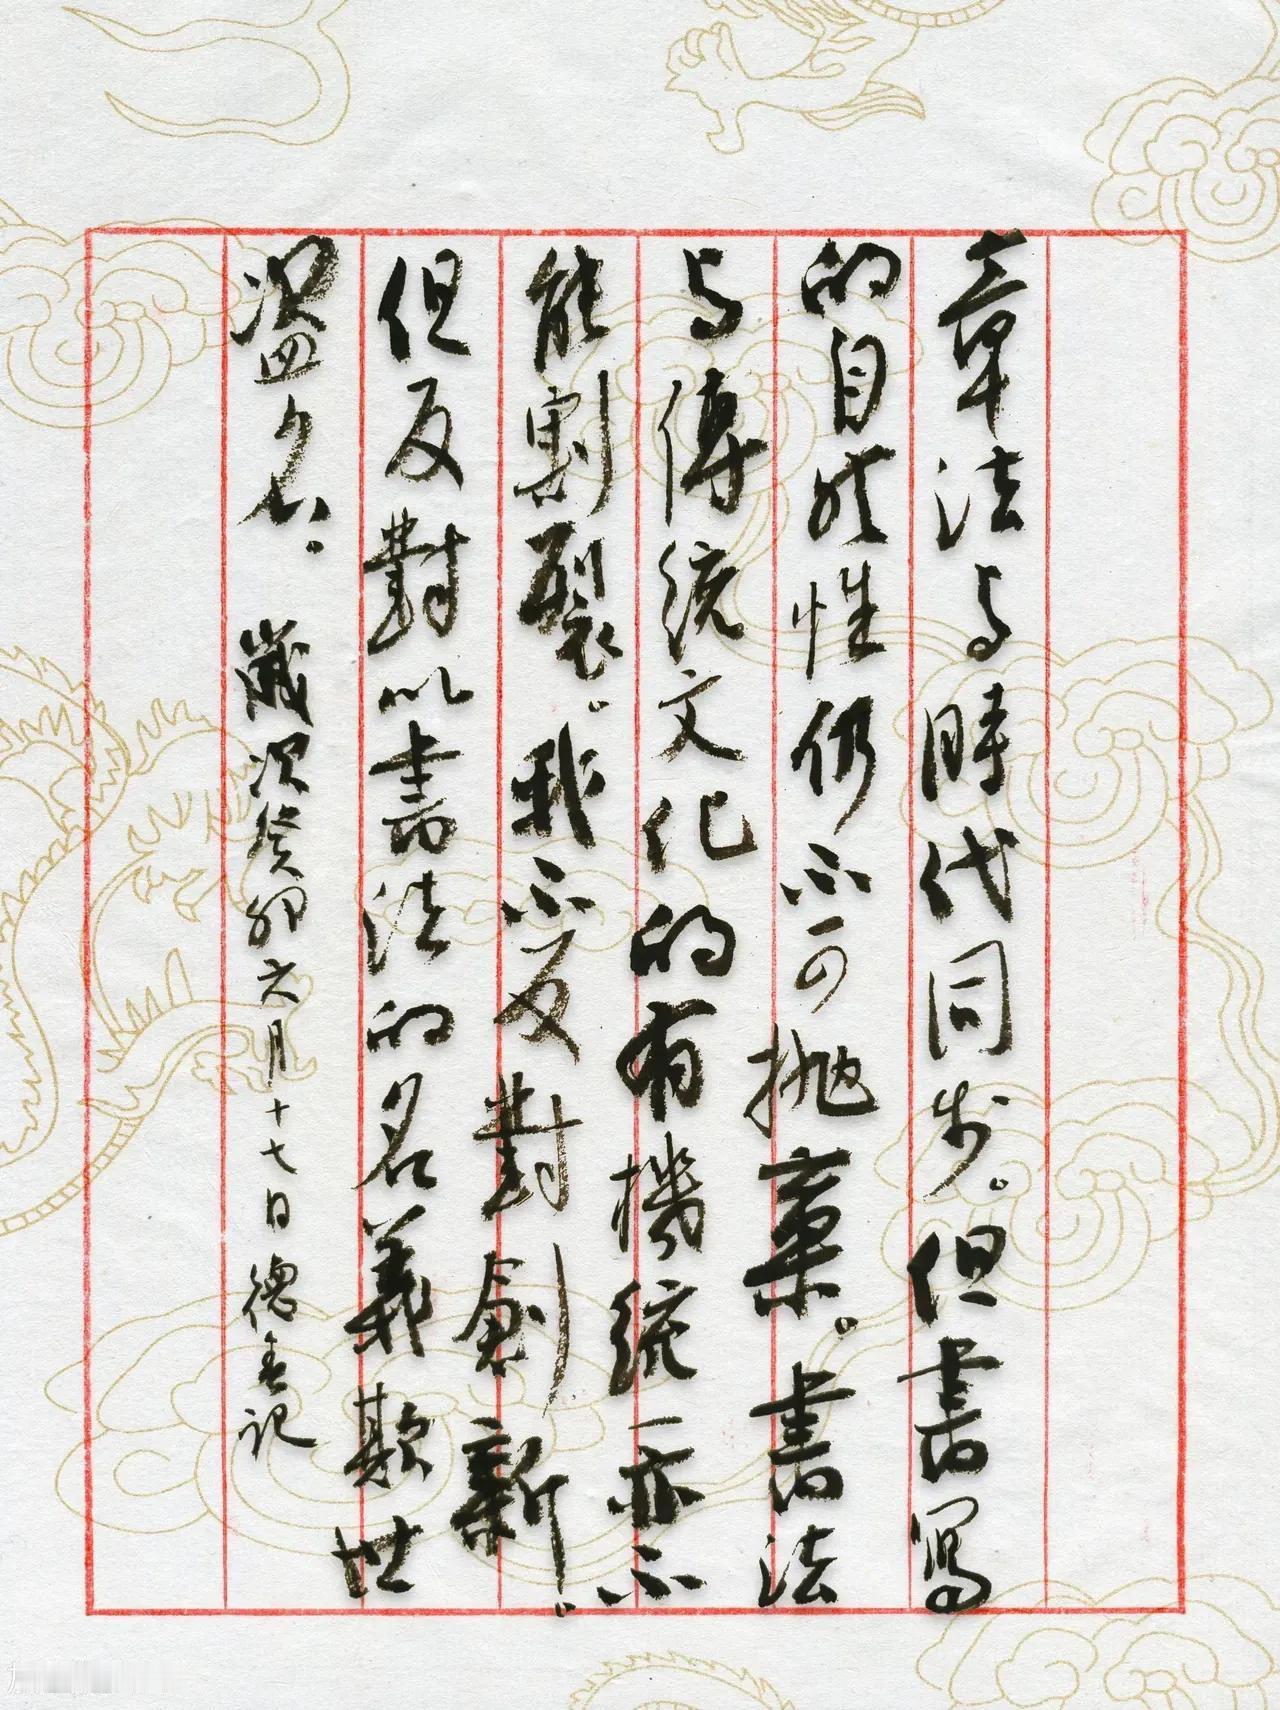 章法与時代同步。但書寫
的自然性仍不可抛棄。書法
与傳统文化的有機统一亦不
能割裂。我不反對創新。
但反對以書法的名義欺世
盗名。 歲次癸卯六月十七日德 记